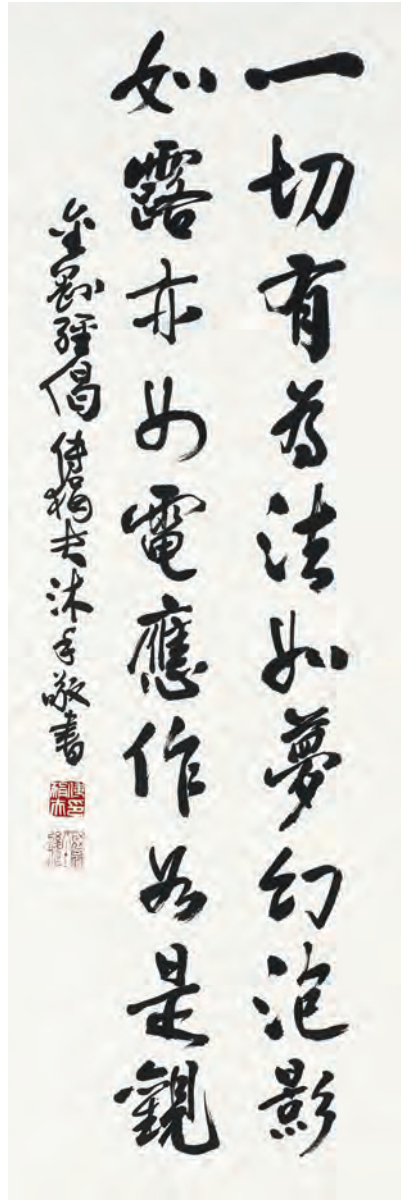 一切有為法如夢幻泡影
如露亦如電應作如是觀
金剛經偈 傅狷夫沐手敬書